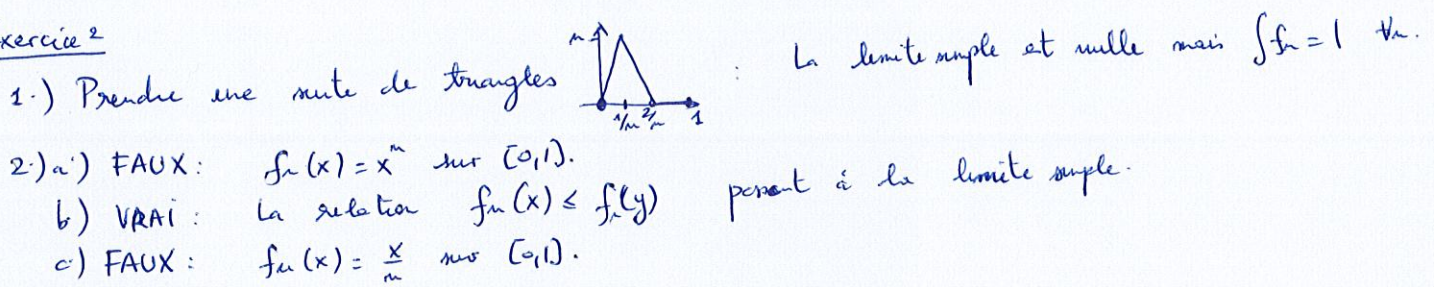 xercice 2
1.) Prendre une suite de triangles n 1/n 2/n 1 : La limite simple est nulle mais ∫fn = 1 ∀n.
2.) a) FAUX : fn(x) = x^n sur [0,1].
b) VRAI : La relation fn(x) ≤ fn(y) passent à la limite simple.
c) FAUX : fn(x) = x/n sur [0,1].